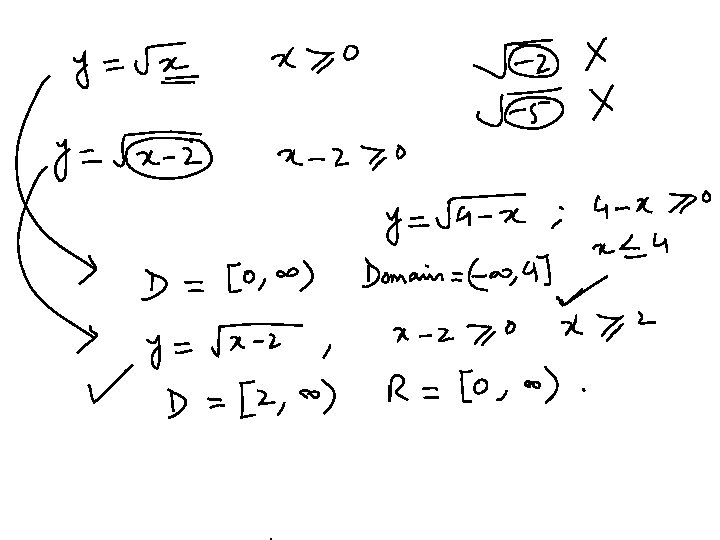 y = √x    x ≥ 0    √-2 ✗
√-5 ✗
y = √x-2    x-2 ≥ 0
y = √4-x ; 4-x ≥ 0
x ≤ 4
D = [0, ∞)    Domain = (-∞, 4]
y = √x-2 ,    x-2 ≥ 0    x ≥ 2
D = [2, ∞)    R = [0, ∞) .